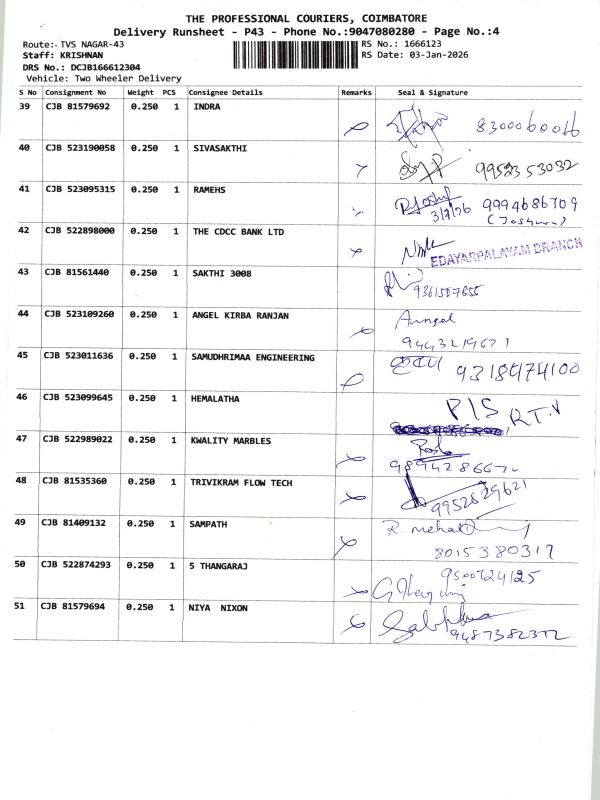 THE PROFESSIONAL COURIERS, COIMBATORE
Delivery Runsheet - P43 - Phone No.:9047080280 - Page No.:4
Route:- TVS NAGAR-43
RS No.: 1666123
Staff: KRISHNAN
RS Date: 03-Jan-2026
DRS No.: DCJB166612304
Vehicle: Two Wheeler Delivery
S No Consignment No Weight PCS Consignee Details Remarks Seal & Signature
39 CJB 81579692 0.250 1 INDRA 8300060016
40 CJB 523190058 0.250 1 SIVASAKTHI 9952353032
41 CJB 523095315 0.250 1 RAMEHS 9994686709
3/1/26 (Joshua)
42 CJB 522898000 0.250 1 THE CDCC BANK LTD
EDAYARPALAYAM BRANCH
43 CJB 81561440 0.250 1 SAKTHI 3008
9361507855
44 CJB 523109260 0.250 1 ANGEL KIRBA RANJAN Anngel
9443219671
45 CJB 523011636 0.250 1 SAMUDHRIMAA ENGINEERING 9318474100
46 CJB 523099645 0.250 1 HEMALATHA P/S R.T.V
47 CJB 522989022 0.250 1 KWALITY MARBLES
48 CJB 81535360 0.250 1 TRIVIKRAM FLOW TECH 9952629621
49 CJB 81409132 0.250 1 SAMPATH R. mehat
8015380317
50 CJB 522874293 0.250 1 S THANGARAJ 9500724125
51 CJB 81579694 0.250 1 NIYA NIXON
9487382372